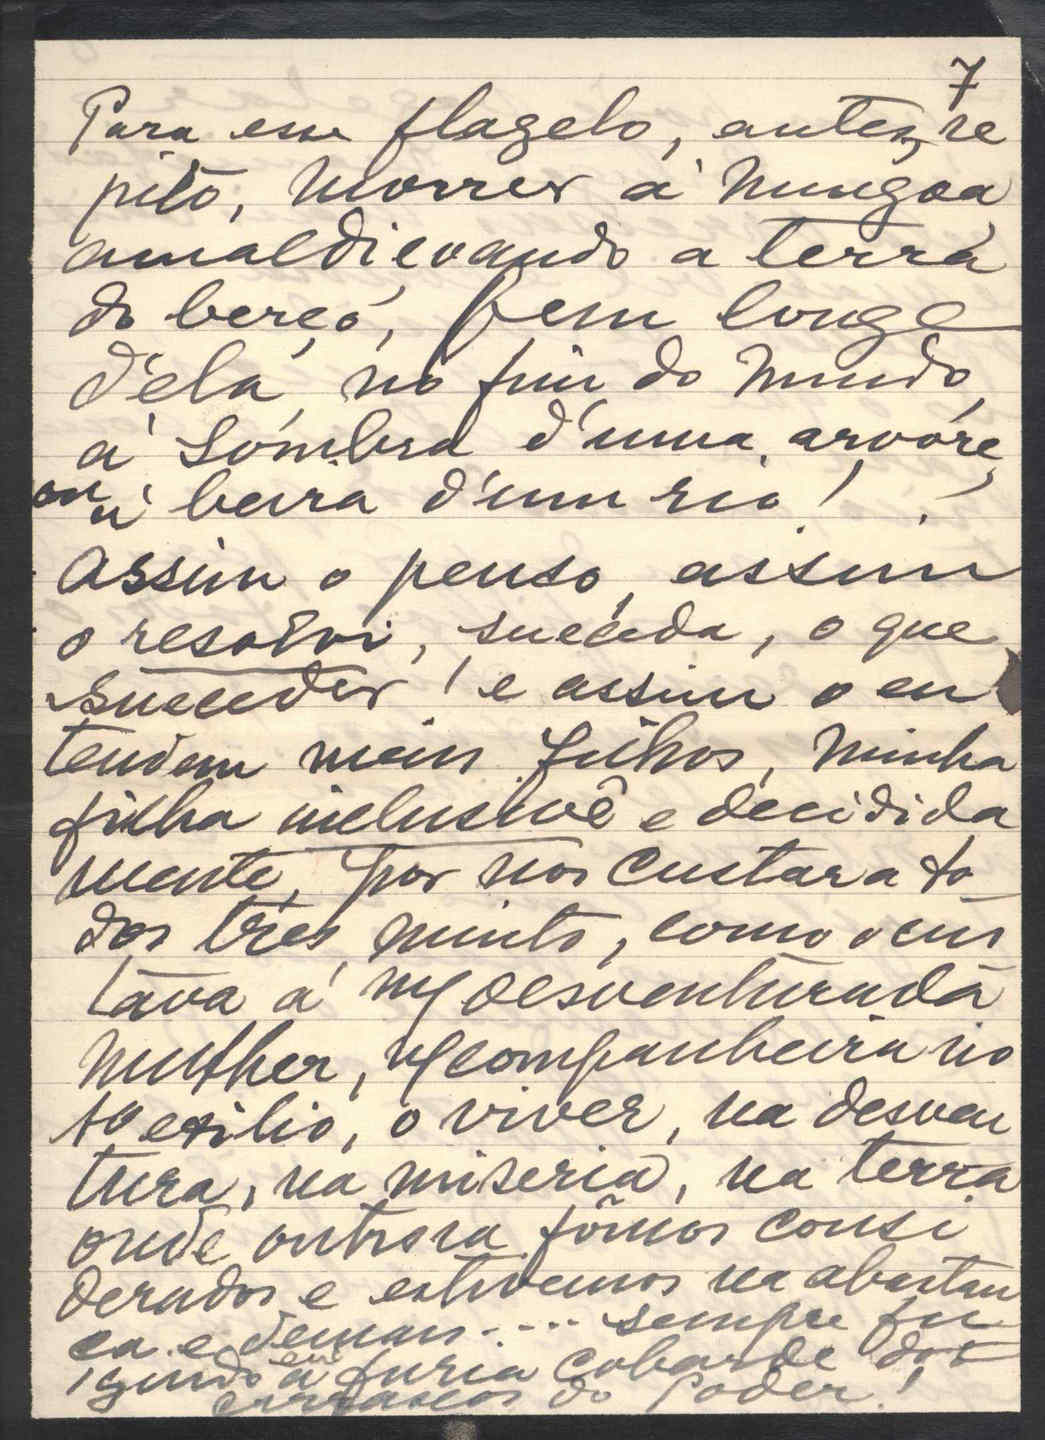 7
Para esse flagelo, antes, re
pito, morrer á mingoa
amaldiçoando a terra
do berço, bem longe
d'ela, no fim do mundo,
á sombra d'uma arvore,
ou á beira d'um rio!
Assim o penso, assim
o resolvi, suceda, o que
suceder! e assim o en
tendem meus filhos, minha
filha inclusivê e decidida
mente, por nos custar a to
dos três, muito, como o cus
tava á desventurada
mulher, companheira no
exilio, o viver, na desven
tura, na miseria, na terra
onde outrora fômos consi
derados e estivemos na abastan
ça e demais.... sempre fu
gindo á furia cobarde dos
carrascos do Poder!